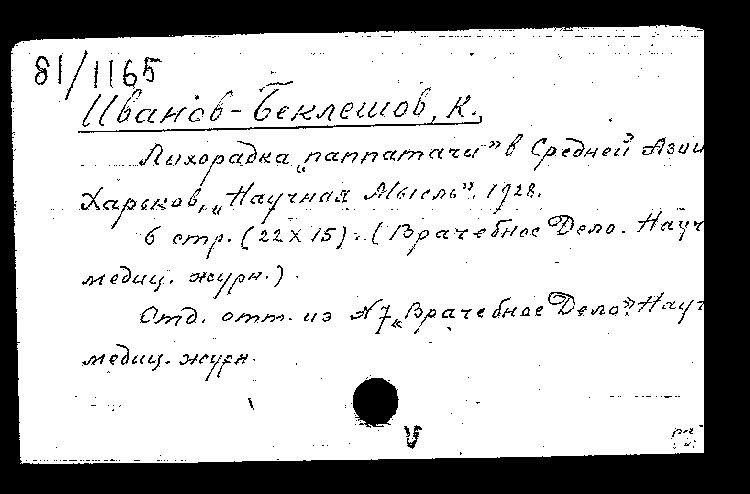 81/1165
Иванов-Беклешов, К.
Лихорадка „паппатачи" в Средней Азии
Харьков, „Научная Мысль". 1928.
6 стр. (22X15). (Врачебное Дело. Науч
медиц. журн.).
Отд. отт. из N7 „Врачебное Дело". Науч
медиц. журн.
V